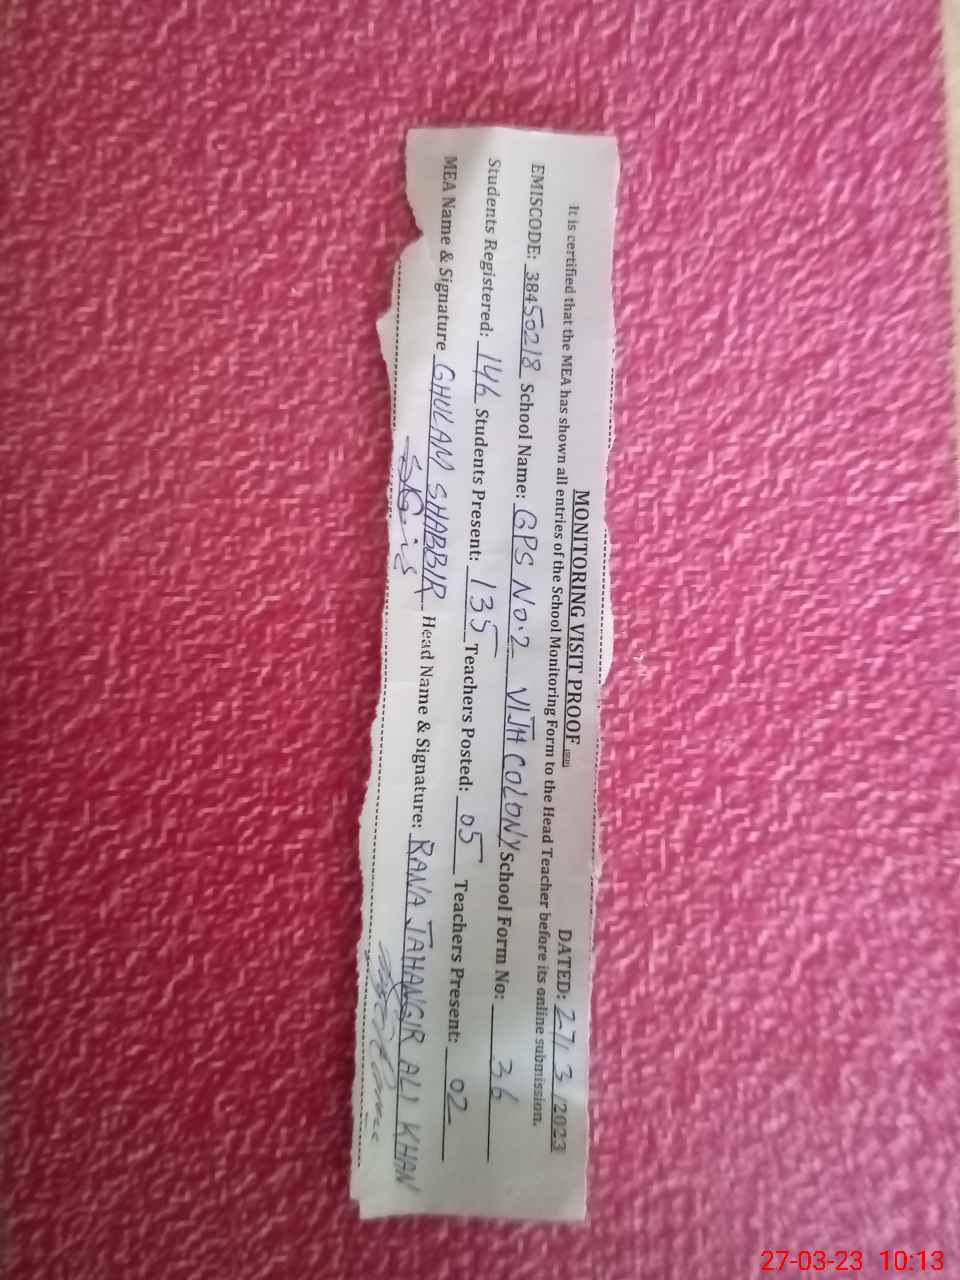 MONITORING VISIT PROOF
DATED: 27/3/2023
It is certified that the MEA has shown all entries of the School Monitoring Form to the Head Teacher before its online submission.
EMISCODE: 38450218 School Name: GPS No.2 VIJH COLONY School Form No: 36
Students Registered: 146 Students Present: 135 Teachers Posted: 05 Teachers Present: 02
MEA Name & Signature GHULAM SHABBIR Head Name & Signature: RANA JAHANGIR ALI KHAN
27-03-23 10:13